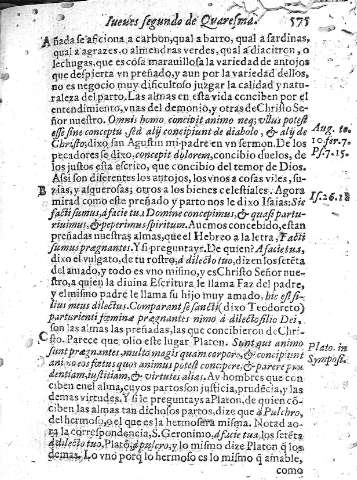 Iueues segundo de Quaresma. 575
ñada se aficiona a carbon, qual a barro, qual a sardinas,
qual a agrazes o almendras verdes, qual a diacitron, o
lechugas, que es cosa marauillosa la variedad de antojos
que despierta vn preñado, y aun por la variedad dellos,
no es negocio muy dificultoso juzgar la calidad y natu-
raleza del parto. Las almas en esta vida conciben por el
entendimiento, vnas del demonio, y otras de Christo Se
ñor nuestro. Omnis homo concipit animo neq; vllus potest
esse sine conceptu, sed alij concipiunt de diabolo, & alij de
Christo, dixo san Agustin mi padre en vn sermon. De los
pecadores se dixo, concepit dolorem, concibio duelos, de
los justos esta escrito, que concibio del temor de Dios.
Assi son diferentes los antojos, los vnos a cosas viles, su-
B zias, y asquerosas; otros a los bienes celestiales. Agora
mirad como este preñado y parto nos le dixo Isaias: Sic
facti sumus, a facie tua Domine concepimus, & quasi partu-
riuimus, & peperimus spiritum. Auemos concebido, estan
preñadas nuestras almas, que el Hebreo a la letra, Facti
sumus prægnantes. Y si preguntays. De quien? A facie tua,
dixo el vulgato, de tu rostro, a dilecto tuo, dizen los setēta
del amado, y todo es vno mismo, y es Christo Señor nue-
stro, a quien la diuina Escritura le llama Faz del padre,
y el mismo padre le llama su hijo muy amado, hic est fi-
lius meus dilectus. Comparent se sancti (dixo Teodoreto)
parturienti fœminæ prægnantes nimo à dilecto filio Dei,
son las almas las preñadas, las que concibieron de Chri-
C sto. Parece que olio este lugar Platon. Sunt qui animo
sunt prægnantes, multo magis quam corpore, & concipiunt
animo eos fœtus quos animus potest concipere, & parere pru
dentiam, iustitiam, & virtutes alias. Ay hombres que con
ciben en el alma, cuyos partos son justicia, prudēcia, y las
demas virtudes. Y si le preguntays a Platon, de quien cō-
ciben las almas tan dichosos partos, dize que à Pulchro,
del hermoso, o el que es la hermosura misma. Notad aora
la correspondencia, S. Geronimo, à facie tua, los setēta
à dilecto tuo, Platō, à pulcro, y lo mismo dize Platon q̃ los
demas. Lo vno porq̃ lo hermoso es lo mismo q̃ amable,
como
Aug. to.
10. ser. 7.
Ps. 7. 15.
Is. 26. 18
Plato. in
Sympos.